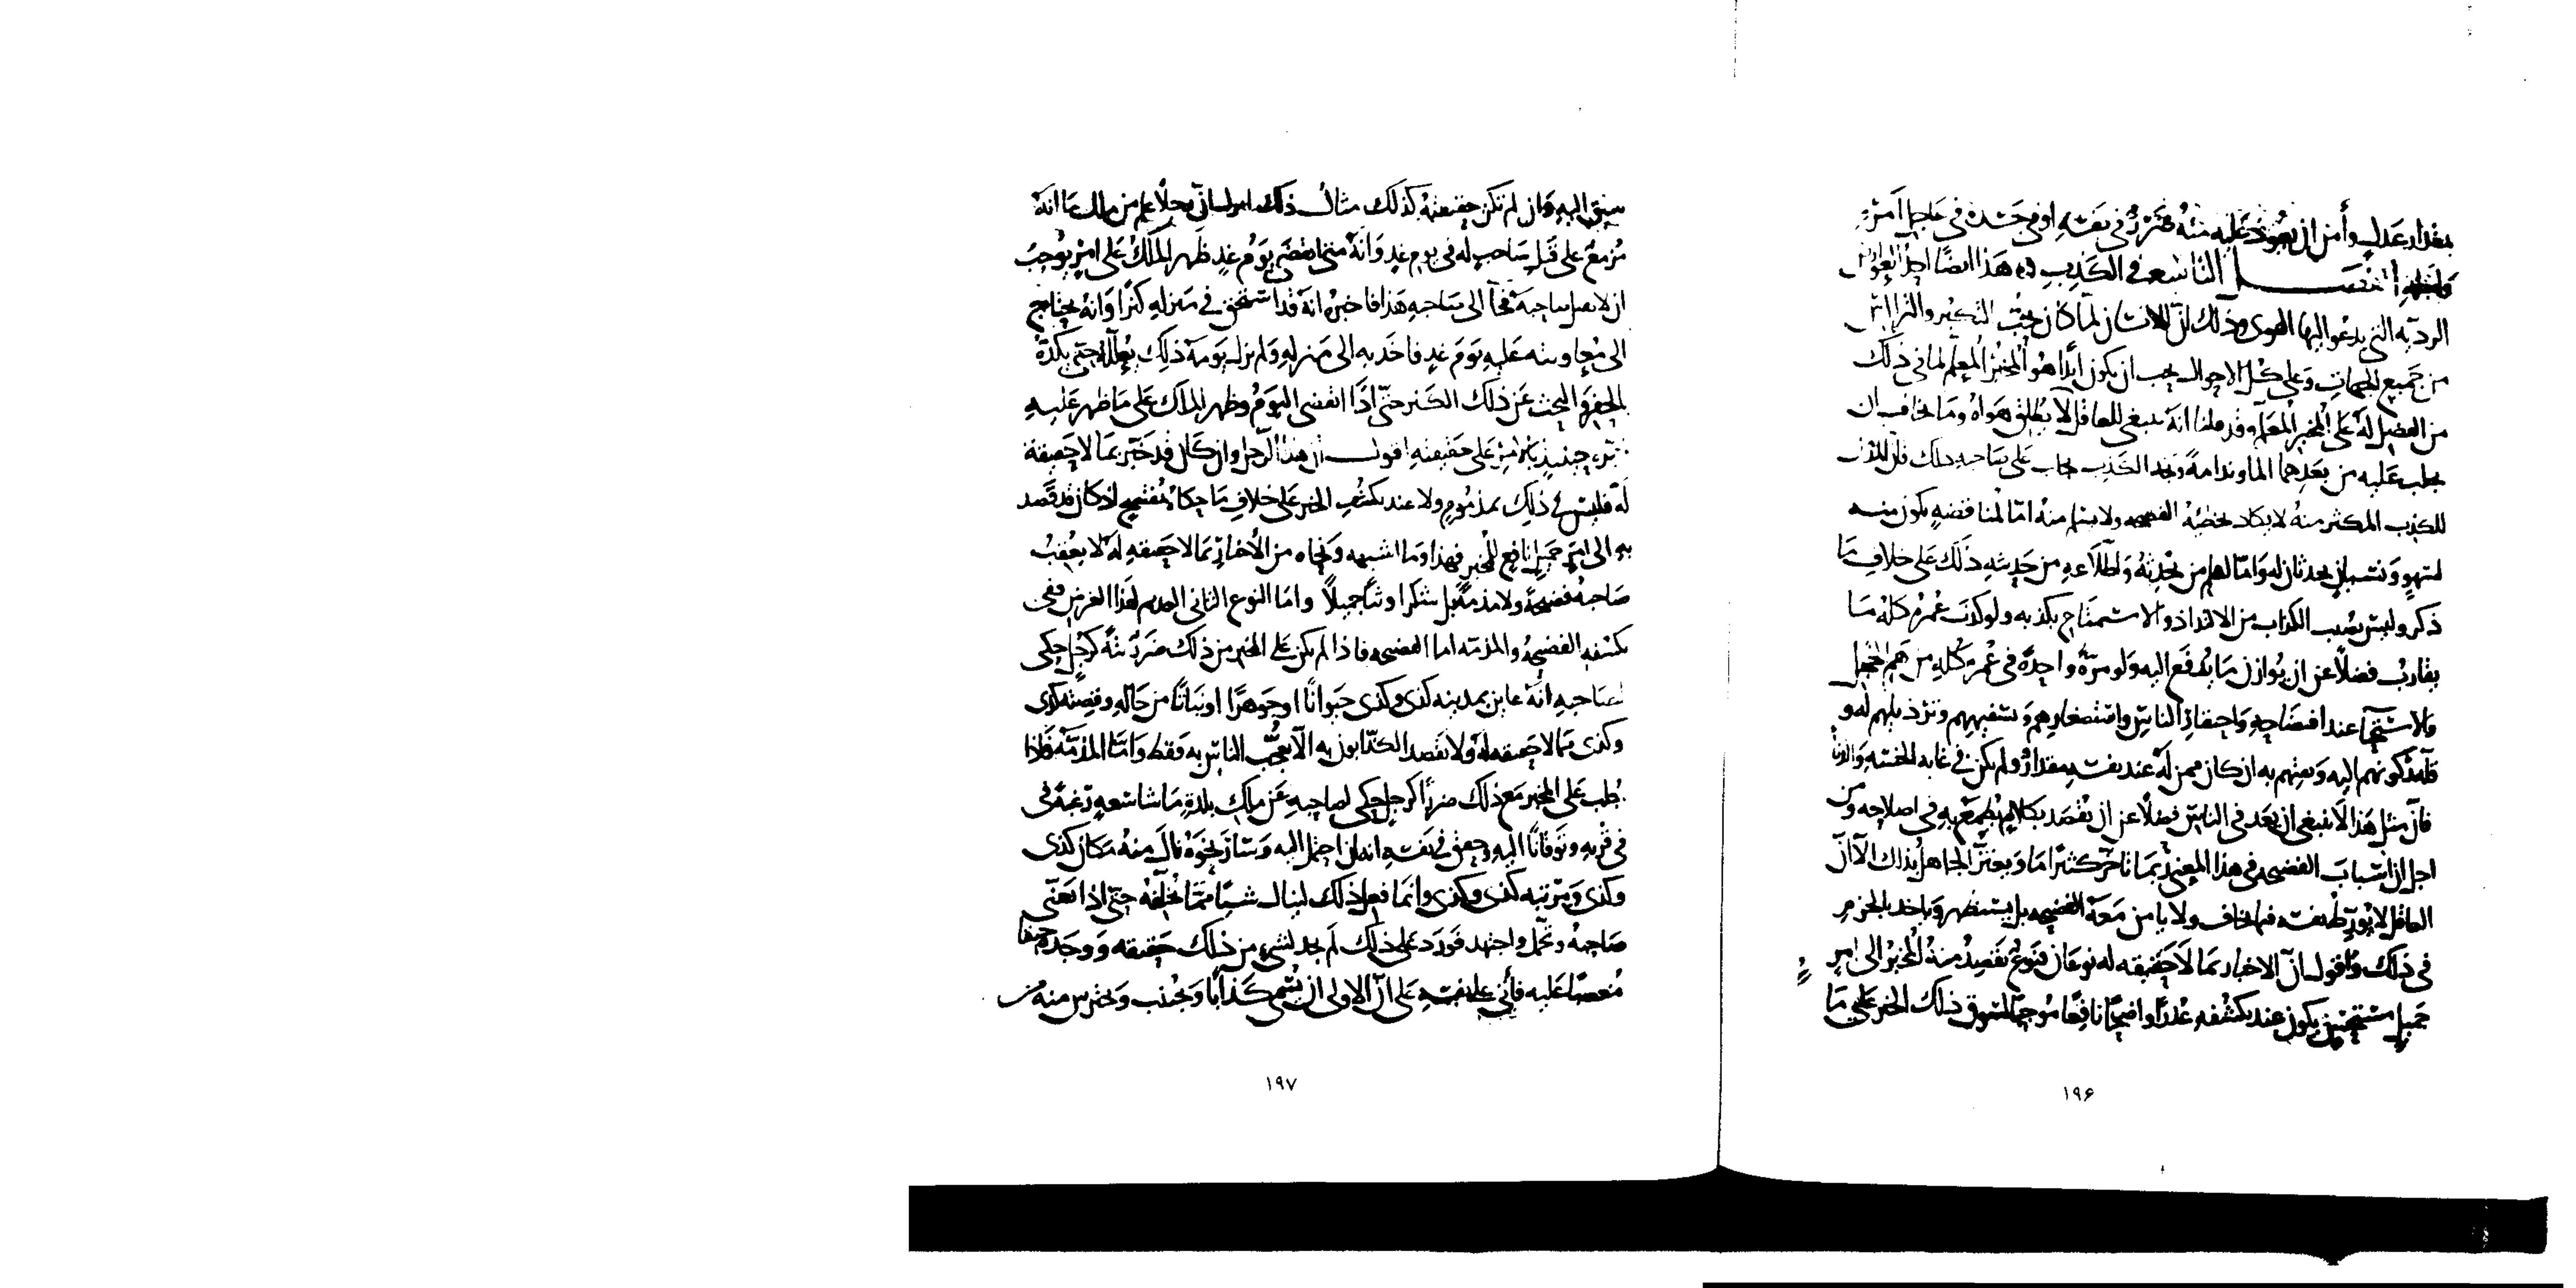 بمقدار عدل وأمن ان يعود عليه منه ضرر في نفسه او في جسده في عاجل أمره
الفصل التاسع في الكذب هذا ايضا احد العوارض
الردية التي يدعو اليها الهوى وذلك ان الانسان لما كان يحب التكبر والتراس
من جميع الجهات وعلى كل الاحوال يجب ان يكون ابدا هو المخبر المعلم لما في ذلك
من الفضل له على المخبر المعلم وقد قلنا انه ينبغي للعاقل الا يطلق هواه وما يخاف ان
يجلب عليه من بعد هما الما وندامة ونجد الكذب يجلب على صاحبه ذلك فان المدمن
للكذب المكثر منه لا يكاد تخطيه الفضيحة ولا يسلم منه اما لمناقضة يكون منه
لسهو ونسيان يحدثان له واما لعلم من يحدثه واطلاعه من حديثه ذلك على خلاف ما
ذكر وليس يصيب الكذاب من الالتذاذ والاستمتاع بكذبه ولو كذب عمره كله ما
يقارب فضلا عن ان يوازن ما يدفع اليه ولو مرة واحدة في عمره كله من هم الخجل
والاستحيا عند افتضاحه واحتقار الناس واستصغارهم وتسفيههم وترذيلهم له و
قلة ركونهم اليه وثقتهم به ان كان ممن له عند نفسه مقدار ولم يكن في غاية الخسة والدناة
فان مثل هذا لا ينبغي ان يعد في الناس فضلا عن ان يقصد بكلام يطمع به في اصلاحه ومن
اجل ان اسباب الفضيحة في هذا المعنى ربما تاخر كثيرا ما ويغتر الجاهل بذلك الا ان
العاقل لا يورط نفسه فيما يخاف ولا يامن معه الفضيحة بل يستظهر وياخذ بالحزم
في ذلك واقول ان الاخبار بما لا حقيقة له نوعان فنوع يقصد منه المخبر الى امر
جميل مستحسن يكون عند تكشفه عذرا واضحا نافعا موجبا لسوق ذلك الخبر على ما
١٩۶
سيق اليه وان لم تكن حقيقته كذلك مثال ذلك لو ان رجلا علم من ملك ما انه
مزمع على قتل صاحب له في يوم غد وانه متى انقضى يوم غد ظهر الملك على امر يوجب
ان لا يقتل صاحبه فجا الى صاحبه هذا فاخبره انه قد استخفى في منزله كنزا وانه يحتاج
الى معاونته عليه يوم غد فاخذ به الى منزله ولم يزل يومه ذلك يعلله حتى يكده
بالحفر والبحث عن ذلك الكنز حتى اذا انقضى اليوم وظهر الملك على ما ظهر عليه
خبره حينئذ بالامر على حقيقته اقول ان هذا الرجل وان كان قد خبر بما لا حقيقة
له فليس في ذلك بمذموم ولا عند تكشف الخبر على خلاف ما حكاه مفتضح اذ كان قد قصد
به الى امر جميل نافع للمخبر فهذا وما اشبهه ونحاه من الأخبار بما لا حقيقة له لا يعقب
صاحبه فضيحة ولا مذمة بل شكرا وثنا جميلا واما النوع الثاني العديم لهذا الغرض ففي
تكشفه الفضيحة والمذمة اما الفضيحة فاذا لم يكن على المخبر من ذلك ضرر بتة كرجل حكى
لصاحبه انه عاين بمدينة كذى وكذى حيوانا او جوهرا او نباتا من حاله وقصته كذى
وكذى مما لا حقيقة له ولا يقصد الكذابون به الا تعجب الناس به فقط واما المذمة فاذا
جلب على المخبر مع ذلك ضررا كرجل حكى لصاحبه عن ملك بلدة ما شاسعة رغبة في
في قربه وتوقانا اليه وحقق في نفسه انه ان احتمل اليه وسار نحوه نال منه مكان كذى
وكذى ومرتبة كذى وكذى وانما فعل ذلك لينال شيئا مما يخلفه حتى اذا تعنى
صاحبه وتحمل واجتهد فورد على ذلك لم يجد لشي من ذلك حقيقة ووجده حنقا
مغضبا عليه فأتى على نفسه على ان الاولى ان يسمى كذابا ويجتنب ويحترس منه من
١٩٧